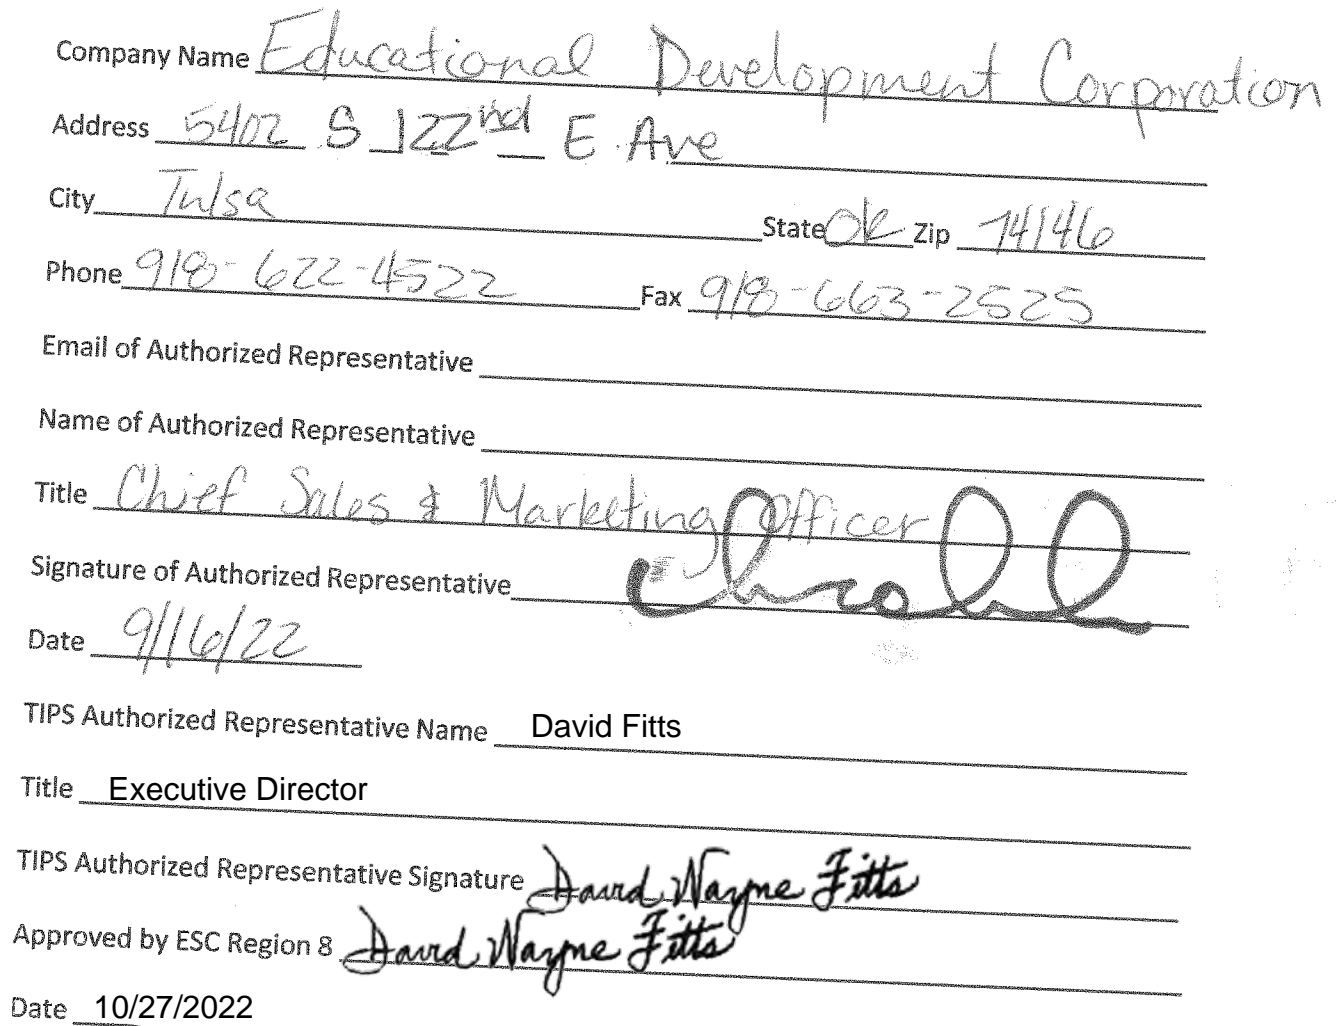 Company Name Educational Development Corporation
Address 5402 S 122nd E Ave
City Tulsa State OK Zip 74146
Phone 918-622-4522 Fax 918-663-2525
Email of Authorized Representative
Name of Authorized Representative
Title Chief Sales & Marketing Officer
Signature of Authorized Representative
Date 9/16/22
TIPS Authorized Representative Name David Fitts
Title Executive Director
TIPS Authorized Representative Signature David Wayne Fitts
Approved by ESC Region 8 David Wayne Fitts
Date 10/27/2022